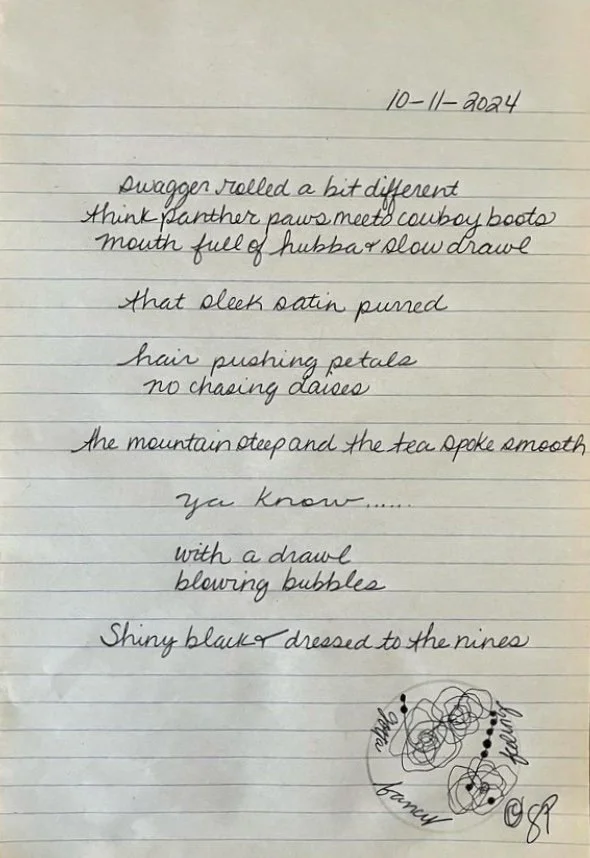 10-11-2024
swagger rolled a bit different
think panther paws meets cowboy boots
mouth full of hubba & slow drawl
that sleek satin purred
hair pushing petals
no chasing daises
the mountain steep and the tea spoke smooth
ya know......
with a drawl
blowing bubbles
Shiny black & dressed to the nines
gotta
fancy
© SP